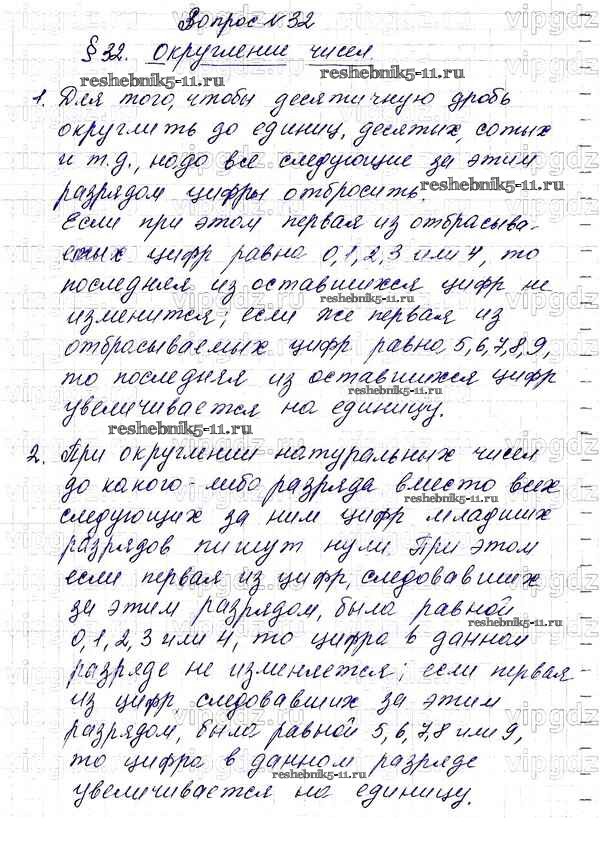 Вопрос №32
§32. Округление чисел.
reshebnik5-11.ru
1. Для того, чтобы десятичную дробь
округлить до единиц, десятых, сотых
и т.д., надо все следующие за этим
разрядом цифры отбросить.
reshebnik5-11.ru
Если при этом первая из отбрасыва-
емых цифр равна 0,1,2,3 или 4, то
последняя из оставшихся цифр не
reshebnik5-11.ru
изменится; если же первая из
отбрасываемых цифр равна 5,6,7,8,9,
то последняя из оставшихся цифр
увеличивается на единицу.
reshebnik5-11.ru
2. При округлении натуральных чисел
до какого-либо разряда вместо всех
reshebnik5-11.ru
следующих за ним цифр младших
разрядов пишут нули. При этом
если первая из цифр, следовавших
за этим разрядом, была равной
reshebnik5-11.ru
0,1,2,3 или 4, то цифра в данном
разряде не изменяется; если первая
из цифр, следовавших за этим
reshebnik5-11.ru
разрядом, была равной 5,6,7,8 или 9,
то цифра в данном разряде
reshebnik5-11.ru
увеличивается на единицу.